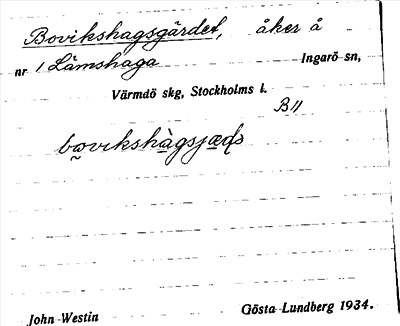 Bovikshagsgärdet, åker å
nr 1 Lämshaga Ingarö sn,
Värmdö skg, Stockholms l.
B11
John Westin Gösta Lundberg 1934.